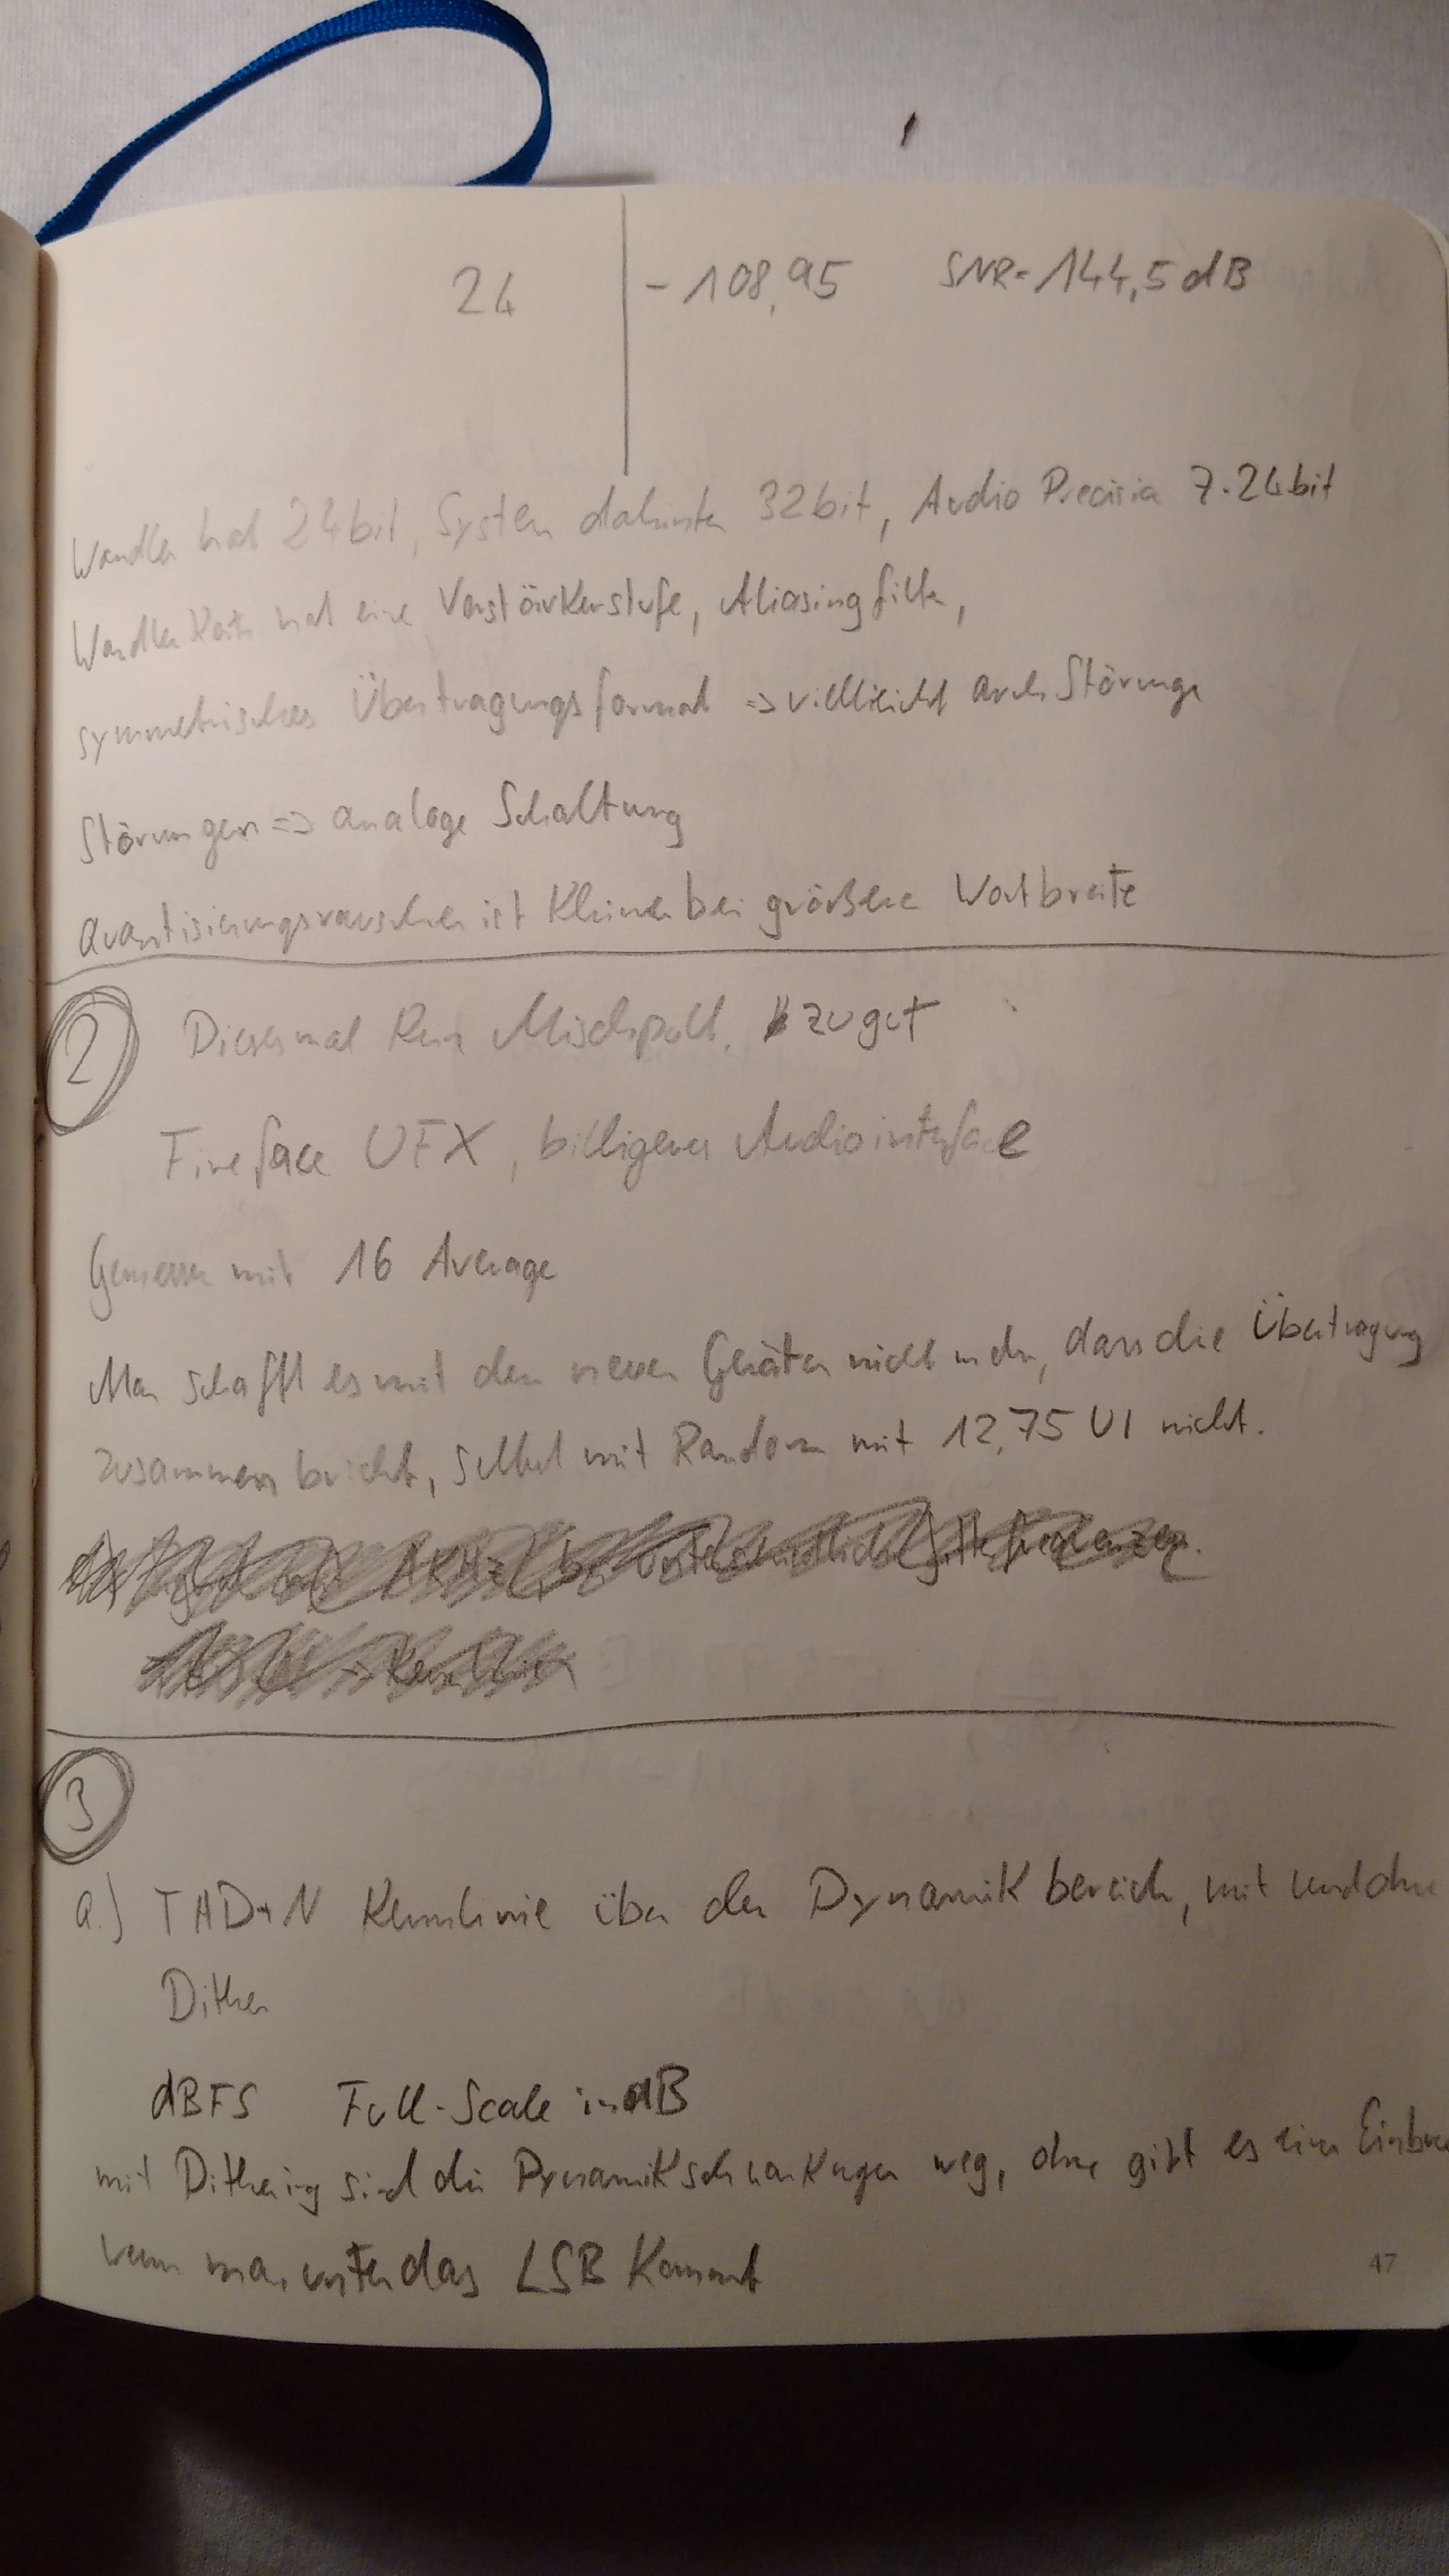 24 | -108,95 SNR=144,5dB
Wandler hat 24bit, System dahinter 32bit, Audio Precision 7.24bit
Wandler hat eine Verstärkerstufe, Aliasingfilter,
symmetrisches Übertragungsformat => vielleicht auch Störunge
Störungen => analoge Schaltung
Quantisierungsrauschen ist kleiner bei größere Wortbreite
2 Diesesmal kein Mischpult, zu gut
Fireface UFX, billigeres Audiointerface
Gemessen mit 16 Average
Man schafft es mit den neuen Geräten nicht mehr, dass die Übertragung
zusammen bricht, selbst mit Random mit 12,75 UI nicht.
3
a.) THD+N Kennlinie über den Dynamikbereich, mit und ohne
Dither
dBFS Full-Scale in dB
mit Dithering sind die Dynamikschwankungen weg, ohne gibt es einen
wenn man unter das LSB kommt
47